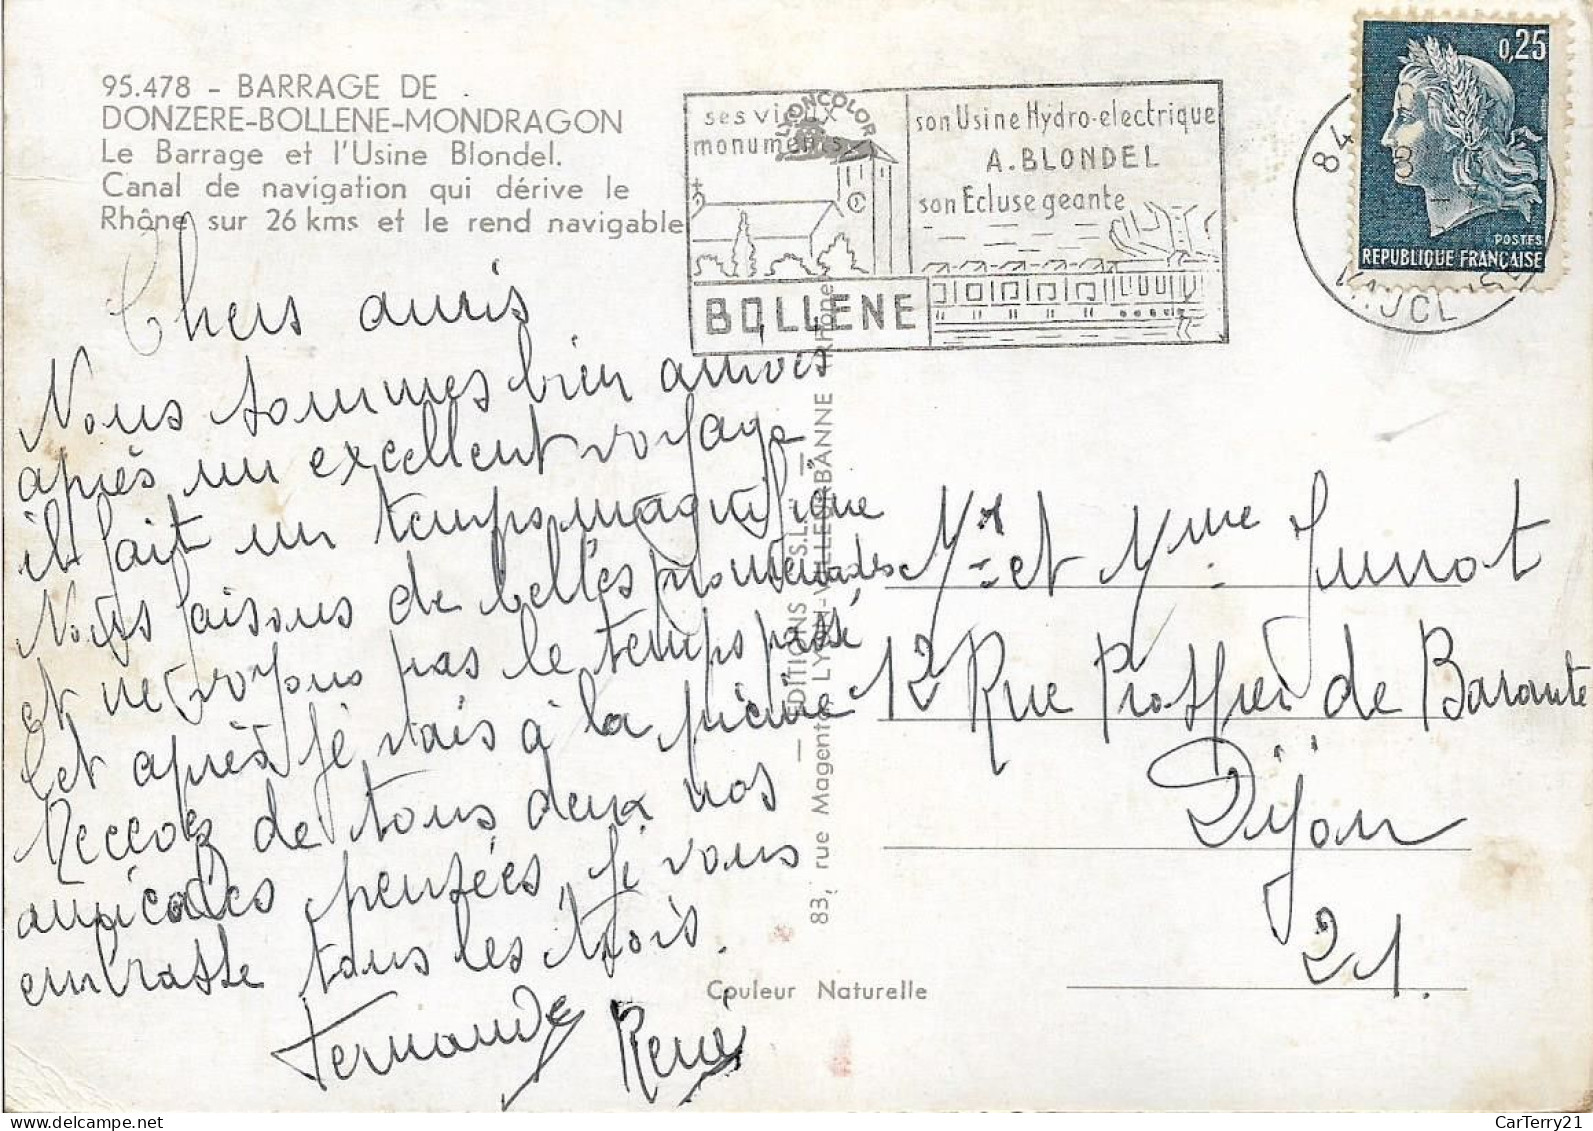 95.478 - BARRAGE DE
DONZERE-BOLLENE-MONDRAGON
Le Barrage et l'Usine Blondel.
Canal de navigation qui dérive le
Rhône sur 26 kms et le rend navigable
ses vieux
monuments
LYONCOLOR
son Usine Hydro-electrique
A. BLONDEL
son Ecluse geante
BOLLENE
0,25
POSTES
REPUBLIQUE FRANÇAISE
84
VAUCLUSE
Chers amis
Nous sommes bien arrivés
après un excellent voyage
il fait un temps magnifique
Nous faisons de belles promenades
et ne voyons pas le temps passé
et après je vais à la picine
Recevez de tous deux nos
amicales pensées, je vous
embrasse tous les trois.
Fernande René
Mr et Mme Junot
12 Rue Prosper de Barante
Dijon
21.
EDITIONS S.L.
83, rue Magenta LYON-VILLEURBANNE Rhône
Couleur Naturelle
CarTerry21